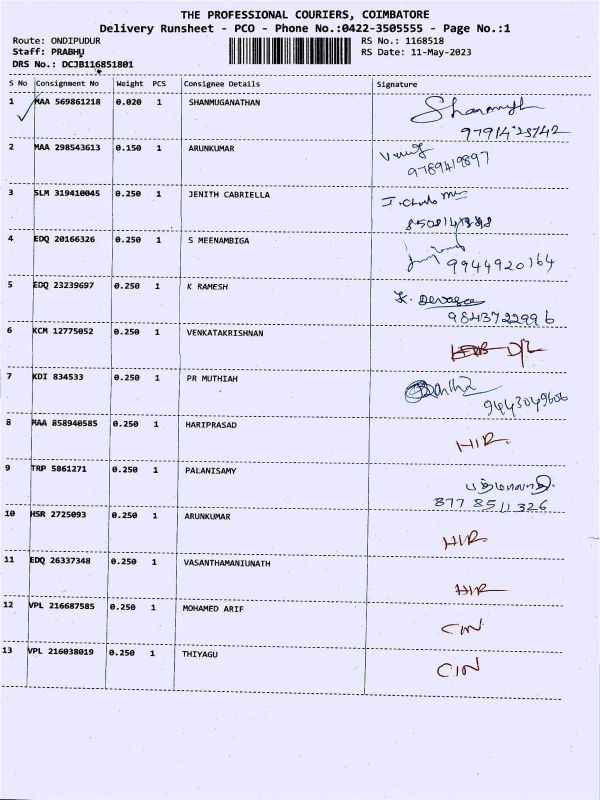 THE PROFESSIONAL COURIERS, COIMBATORE
Delivery Runsheet - PCO - Phone No.:0422-3505555 - Page No.:1
Route: ONDIPUDUR RS No.: 1168518
Staff: PRABHU RS Date: 11-May-2023
DRS No.: DCJB116851801
S No Consignment No Weight PCS Consignee Details Signature
1 MAA 569861218 0.020 1 SHANMUGANATHAN
2 MAA 298543613 0.150 1 ARUNKUMAR
9789419897
3 SLM 319410045 0.250 1 JENITH CABRIELLA
4 EDQ 20166326 0.250 1 S MEENAMBIGA
9944920164
5 EDQ 23239697 0.250 1 K RAMESH K.
9843722996
6 KCM 12775052 0.250 1 VENKATAKRISHNAN D/L
7 KDI 834533 0.250 1 PR MUTHIAH
9443049606
8 MAA 858940585 0.250 1 HARIPRASAD HIR
9 TRP 5861271 0.250 1 PALANISAMY
877 8511326
10 HSR 2725093 0.250 1 ARUNKUMAR HIR
11 EDQ 26337348 0.250 1 VASANTHAMANIUNATH HIR
12 VPL 216687585 0.250 1 MOHAMED ARIF CIN
13 VPL 216038019 0.250 1 THIYAGU CIN